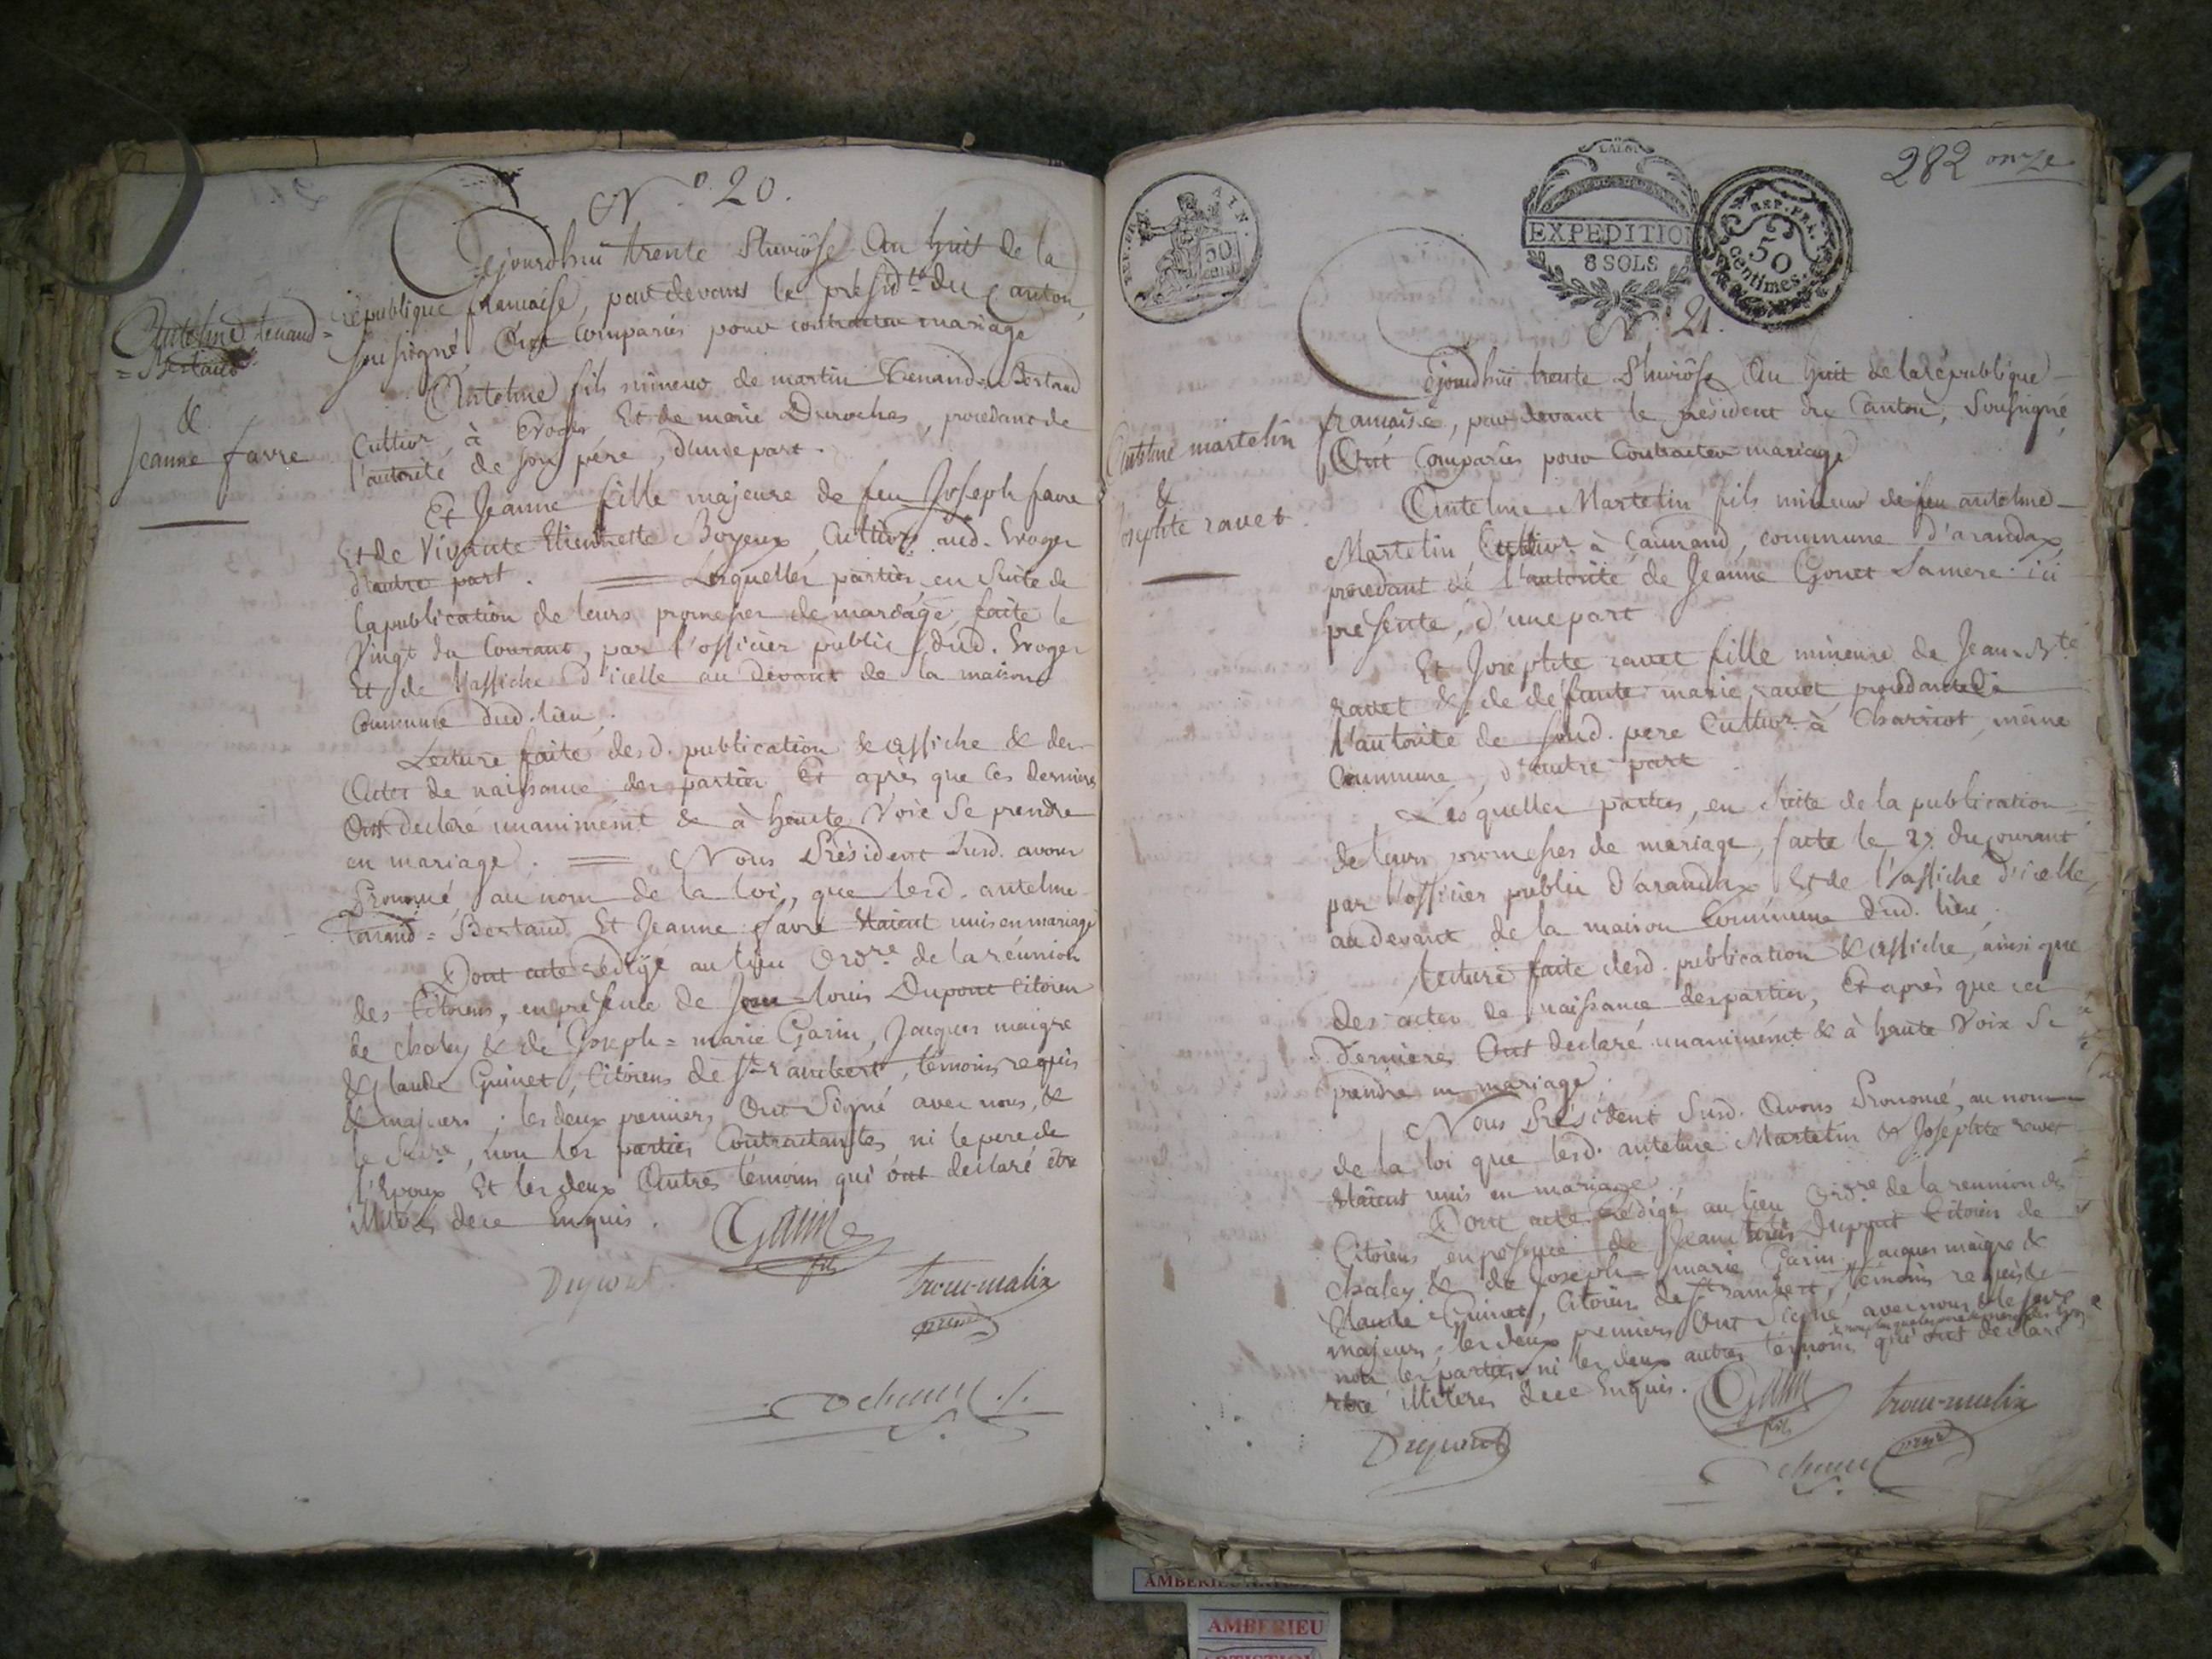 N.o 20.
Cejourdhui trente Pluviôse An huit de la
république francaise, par devant le présid.te du Canton,
soussigné, Ont Comparus pour contracter mariage
Antelme tenand=
=Bertaud
&
Jeanne favre
Antelme fils mineur de martin Tenand=Bertaud
Cultivr. à Evoges Et de marie Duroches, procedant de
l'autorité de son père, d'une part.
Et Jeanne fille majeure de feu Joseph favre
Et de Vivante Etiennette Boyeux Cultivr. aud. Evoges
d'autre part. = Lesquelles parties, en suite de
la publication de leurs promesses de mariage, faite le
Vingt du Courant, par l'officier public dud. Evoges
Et de l'affiche d'icelle au devant de la maison
Commune dud. lieu.
Lecture faite desd. publication & affiche & des
Actes de naissance des parties Et après que ces derniers
Ont declaré unanimemt & à haute Voix Se prendre
en mariage. = Nous Président susd. avons
Prononcé, au nom de la loi, que lesd. antelme
tenand=Bertaud Et Jeanne favre étaient unis en mariage
Dont acte rédigé au lieu Ordre. de la réunion
des Citoiens, en présence de jean-louis Dupont Citoien
de chaley & de Joseph=marie Garin, Jacques maigre
& Claude Guinet, Citoiens de St rambert, témoins requis
& majeurs; les deux premiers Ont Signé avec nous, &
le Secre., non les parties Contractantes, ni le pere de
l'Epoux Et les deux Autres témoins qui ont declaré être
illitérés de ce Enquis.
Garin
fils
Dupont
trou-malix
présid
282 onze
REP. FRA.
50
cent
EXPEDITION
8 SOLS
REP. FRA.
50
centimes
N.o 21.
Cejourdhui trente Pluviôse An huit de la république
francaise, par devant le président du Canton, Soussigné,
Ont Comparus pour Contracter mariage
Antelme martelin
&
Josephte ravet
Antelme Martelin fils mineur de feu antelme
Martelin Cultivr. à Caurand, commune d'arandax,
procedant de l'autorité de Jeanne Gonet Sa mere ici
présente, d'une part
Et Josephte ravet fille mineure de Jean-Bte
ravet & de défunte marie ravet, procedante de
l'autorité de sond. pere Cultivr. à Charvcot, même
Commune, d'autre part.
Lesquelles parties, en suite de la publication
de leurs promesses de mariage, faite le 27 du Courant
par l'officier public d'arandax Et de l'affiche d'icelle,
au devant de la maison Commune dud. lieu.
Lecture faite desd. publication & affiche, ainsi que
des actes de naissance des parties, Et après que ces
dernieres Ont declaré unanimemt & à haute Voix Se
prendre en mariage.
Nous Président Susd. Avons Prononcé, au nom
de la loi que lesd. antelme Martelin & Josephte ravet
étaient unis en mariage
Dont acte rédigé au lieu Ordre de la reunion des
Citoiens en présence de Jean louis Dupont Citoien de
chaley & de Joseph-marie Garin, Jacques maigre &
Claude Guinet, Citoiens de St rambert, témoins requis &
majeurs; les deux premiers Ont Signé avec nous & le secre
non les parties ni les deux autres témoins qui ont declaré
être illitérés de ce Enquis.
Garin
fils
trou-malix
présid
Dupont
AMBERIEU
AMBERIEU